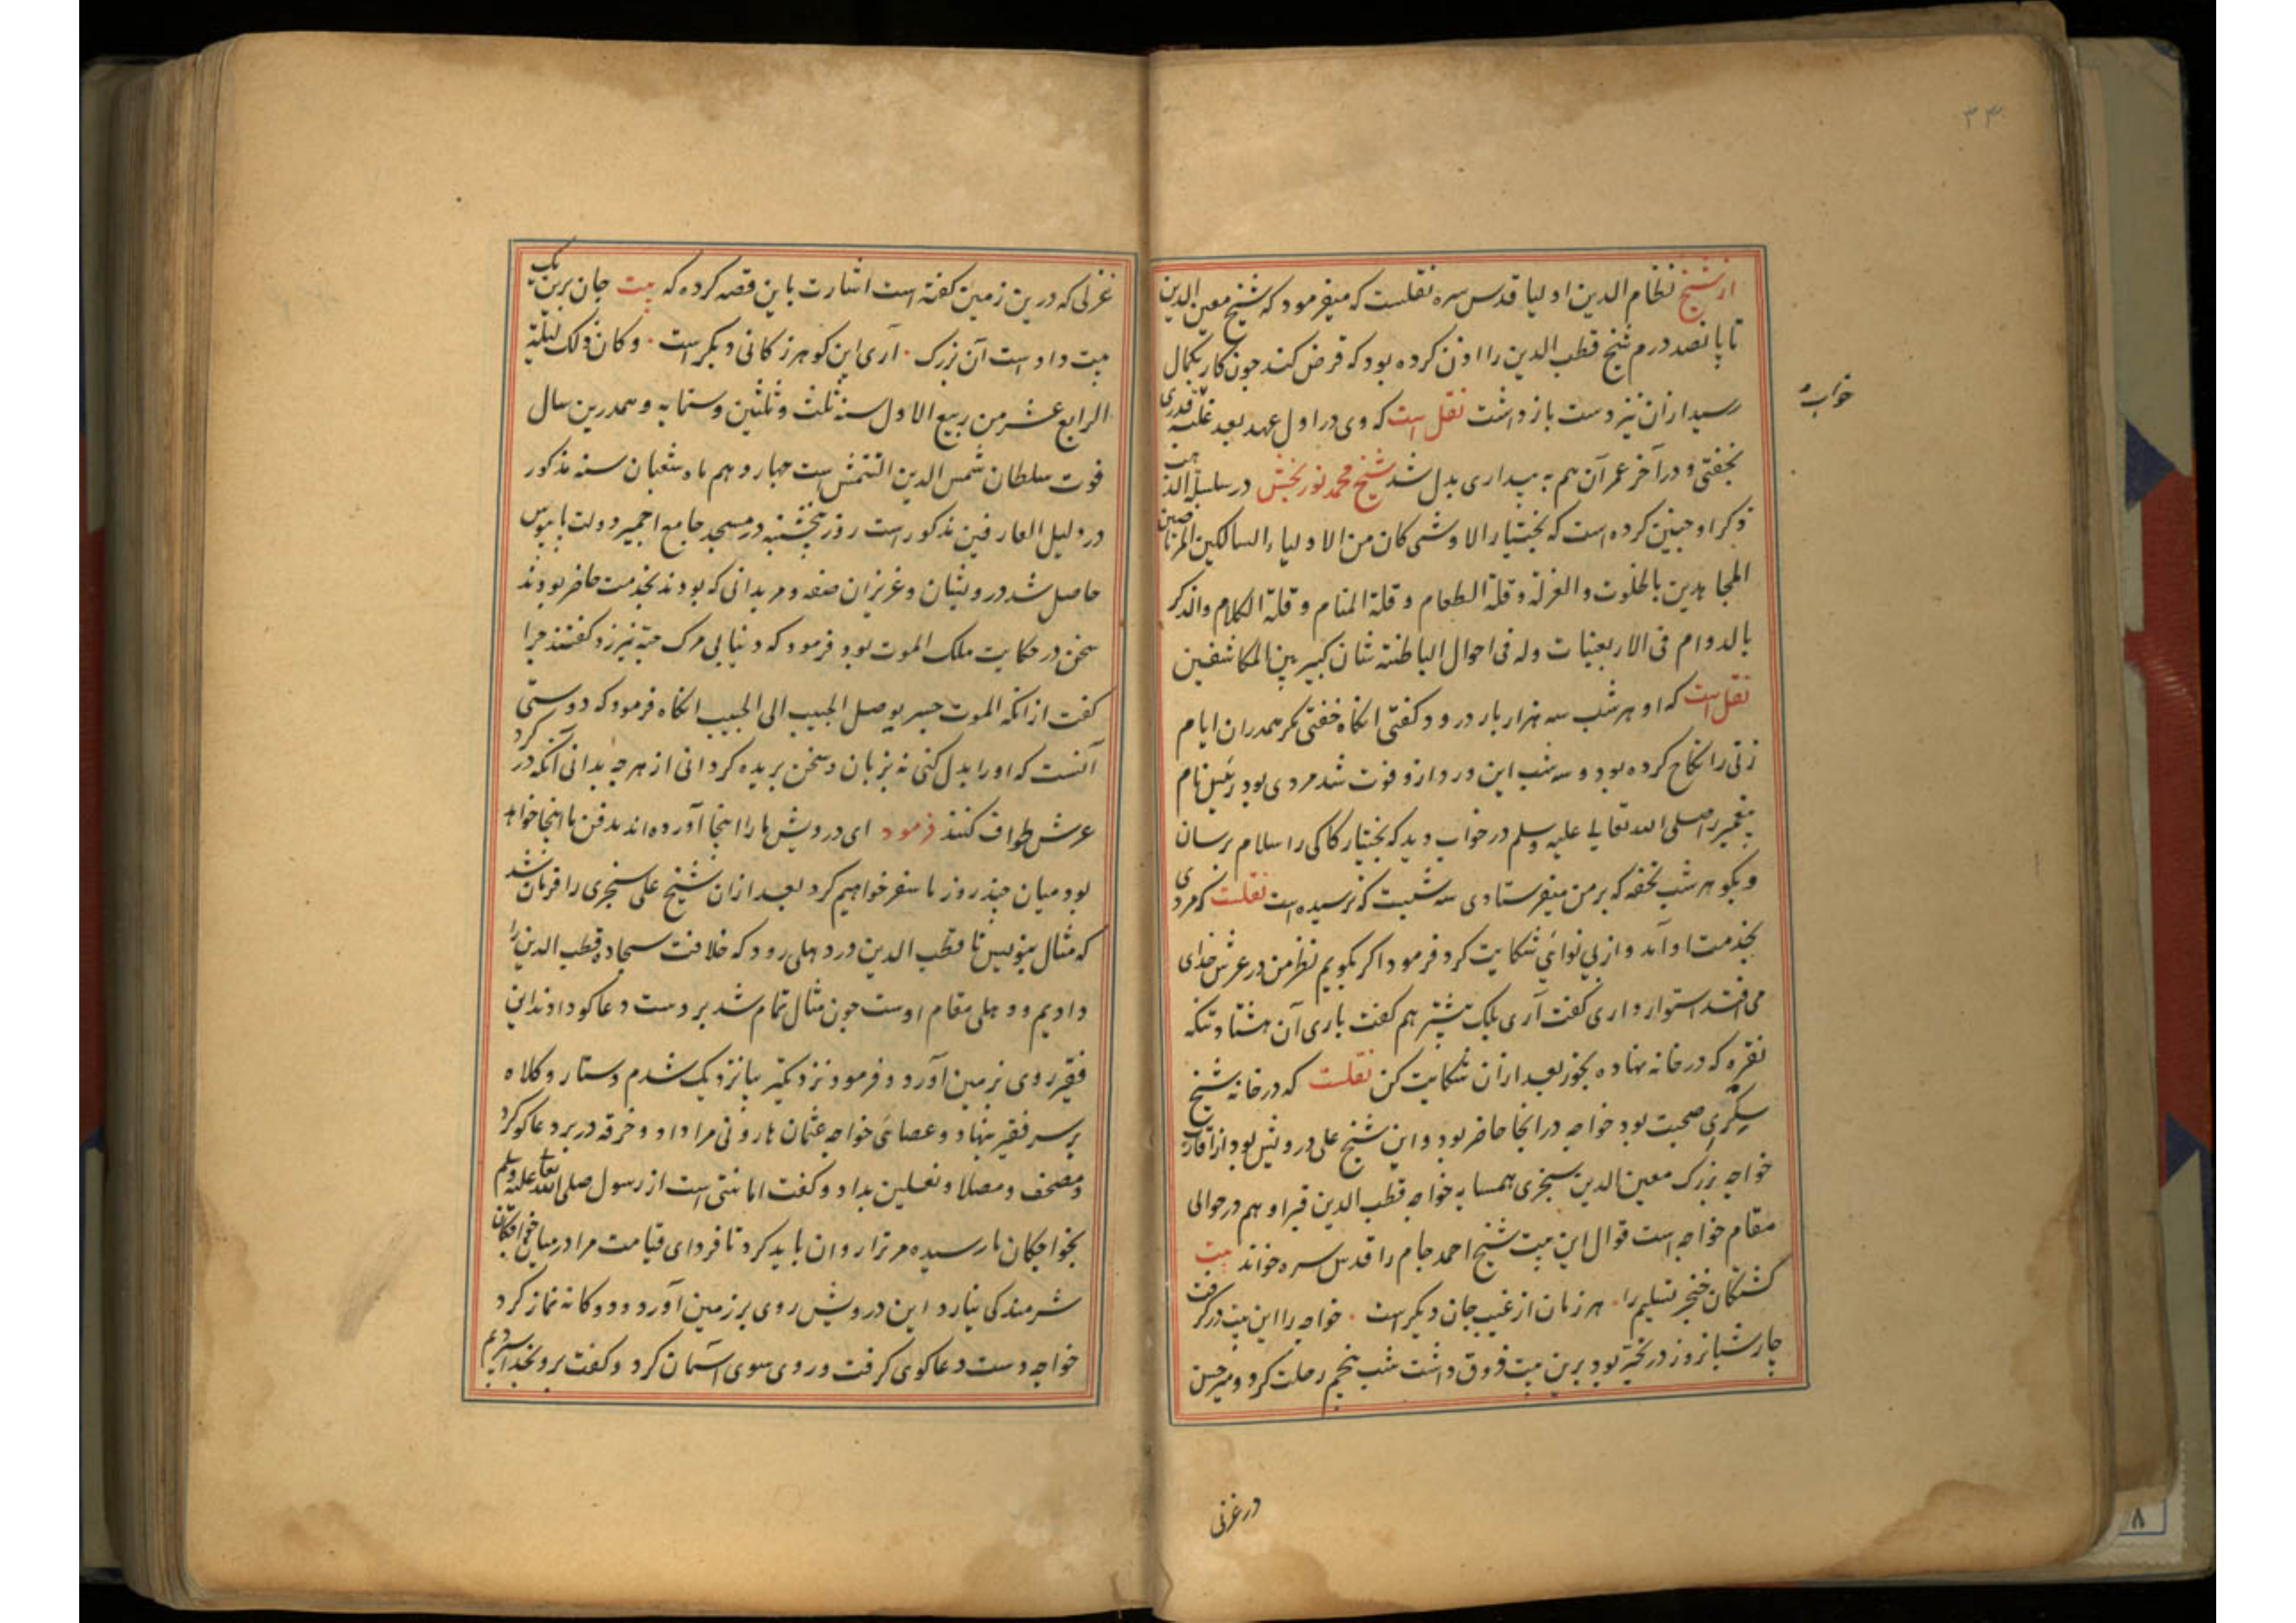 ۳۴
از شیخ نظام الدین اولیا قدس سره نقلست که میفرمود که شیخ معین الدین
تا پانصد درم شیخ قطب الدین را اذن کرده بود که قرض کند چون کار بکمال
رسید ازان نیز دست بازداشت نقل است که وی در اول عهد بعد غلبه قدری
خواب
بخفتی و در آخر عمر آن هم به بیداری بدل شد شیخ محمد نوربخش در سلسلة الذهب
ذکر او چنین کرده است که بختیار الاوشی کان من الاولیاء السالکین المرتاضین
المجاهدین بالخلوت والعزلة وقلة الطعام وقلة المنام وقلة الکلام والذکر
بالدوام فی الاربعینات وله فی احوال الباطنة شان کبیر بین المکاشفین
نقل است که او هر شب سه هزار بار درود گفتی انگاه خفتی مگر همدران ایام
زنی را نکاح کرده بود و سه شب این ورد ازو فوت شد مردی بود رئیس نام
پیغمبر را صلی الله تعالی علیه وسلم در خواب دید که بختیار کاکی را سلام برسان
و بگو هر شب تحفه که بر من میفرستادی سه شبست که نرسیده است نقلست که مردی
بخدمت او آمد و از بی نوائی شکایت کرد فرمود اگر بگویم نظر من در عرش خدای
می افتد استوار داری گفت آری بلک بیشتر هم گفت باری آن هشتاد تنکه
نقره که در خانه نهاده بخور بعد ازان شکایت کن نقلست که در خانه شیخ
سگزی صحبت بود خواجه در انجا حاضر بود و این شیخ علی درویش بود از اقارب
خواجه بزرگ معین الدین سنجری همسایه خواجه قطب الدین قبر او هم در حوالی
مقام خواجه است قوال این بیت شیخ احمد جام را قدس سره خواند بیت
کشتگان خنجر تسلیم را ۰ هر زمان از غیب جان دیگر است ۰ خواجه را این بیت درگرفت
چار شبانروز در تحیر بود برین بیت ذوق داشت شب پنجم رحلت کرد و میر حسن
در غزلی
غزلی که درین زمین گفته است اشارت باین قصه کرده که بیت جان برین یک
بیت داد است آن بزرگ ۰ آری این گوهر ز کانی دیگر است ۰ و کان ذلک لیلة
الرابع عشر من ربیع الاول سنه ثلث وثلثین وستمایه و همدرین سال
فوت سلطان شمس الدین التتمش است چهاردهم ماه شعبان سنه مذکور
در دلیل العارفین مذکور است روز پنجشنبه در مسجد جامع اجمیر دولت پابوس
حاصل شد درویشان و عزیزان صفه و مریدانی که بودند بخدمت حاضر بودند
سخن در حکایت ملک الموت بود فرمود که دنیا بی مرگ حبه نیرزد گفتند چرا
گفت ازانکه الموت جسر یوصل الحبیب الی الحبیب انگاه فرمود که دوستی
آنست که اورا بدل کنی نه بزبان و سخن بریده گردانی از هر چه بدانی آنکه گرد
عرش طواف کنند فرمود ای درویش ما را اینجا آورده اند مدفن ما اینجا خواهد
بود میان چند روز ما سفر خواهیم کرد بعد ازان شیخ علی سنجری را فرمان شد
که مثال بنویس تا قطب الدین در دهلی رود که خلافت سجاده قطب الدین را
دادیم و دهلی مقام اوست چون مثال تمام شد بر دست دعاگو دادند این
فقیر روی بر زمین آورد و فرمود نزدیکتر بیا نزدیک شدم دستار و کلاه
بر سر فقیر بنهاد و عصای خواجه عثمان هارونی مرا داد و خرقه در بر دعاگو کرد
و مصحف و مصلا و نعلین بداد و گفت امانتی است از رسول صلی الله تعالی علیه وسلم
بخواجگان ما رسیده مر ترا روان باید کرد تا فردای قیامت مرا در میان خواجگان
شرمندگی نیارد این درویش روی بر زمین آورد و دوگانه نماز کرد
خواجه دست دعاگوی گرفت و روی سوی آسمان کرد و گفت برو بخدا سپردیم
۸